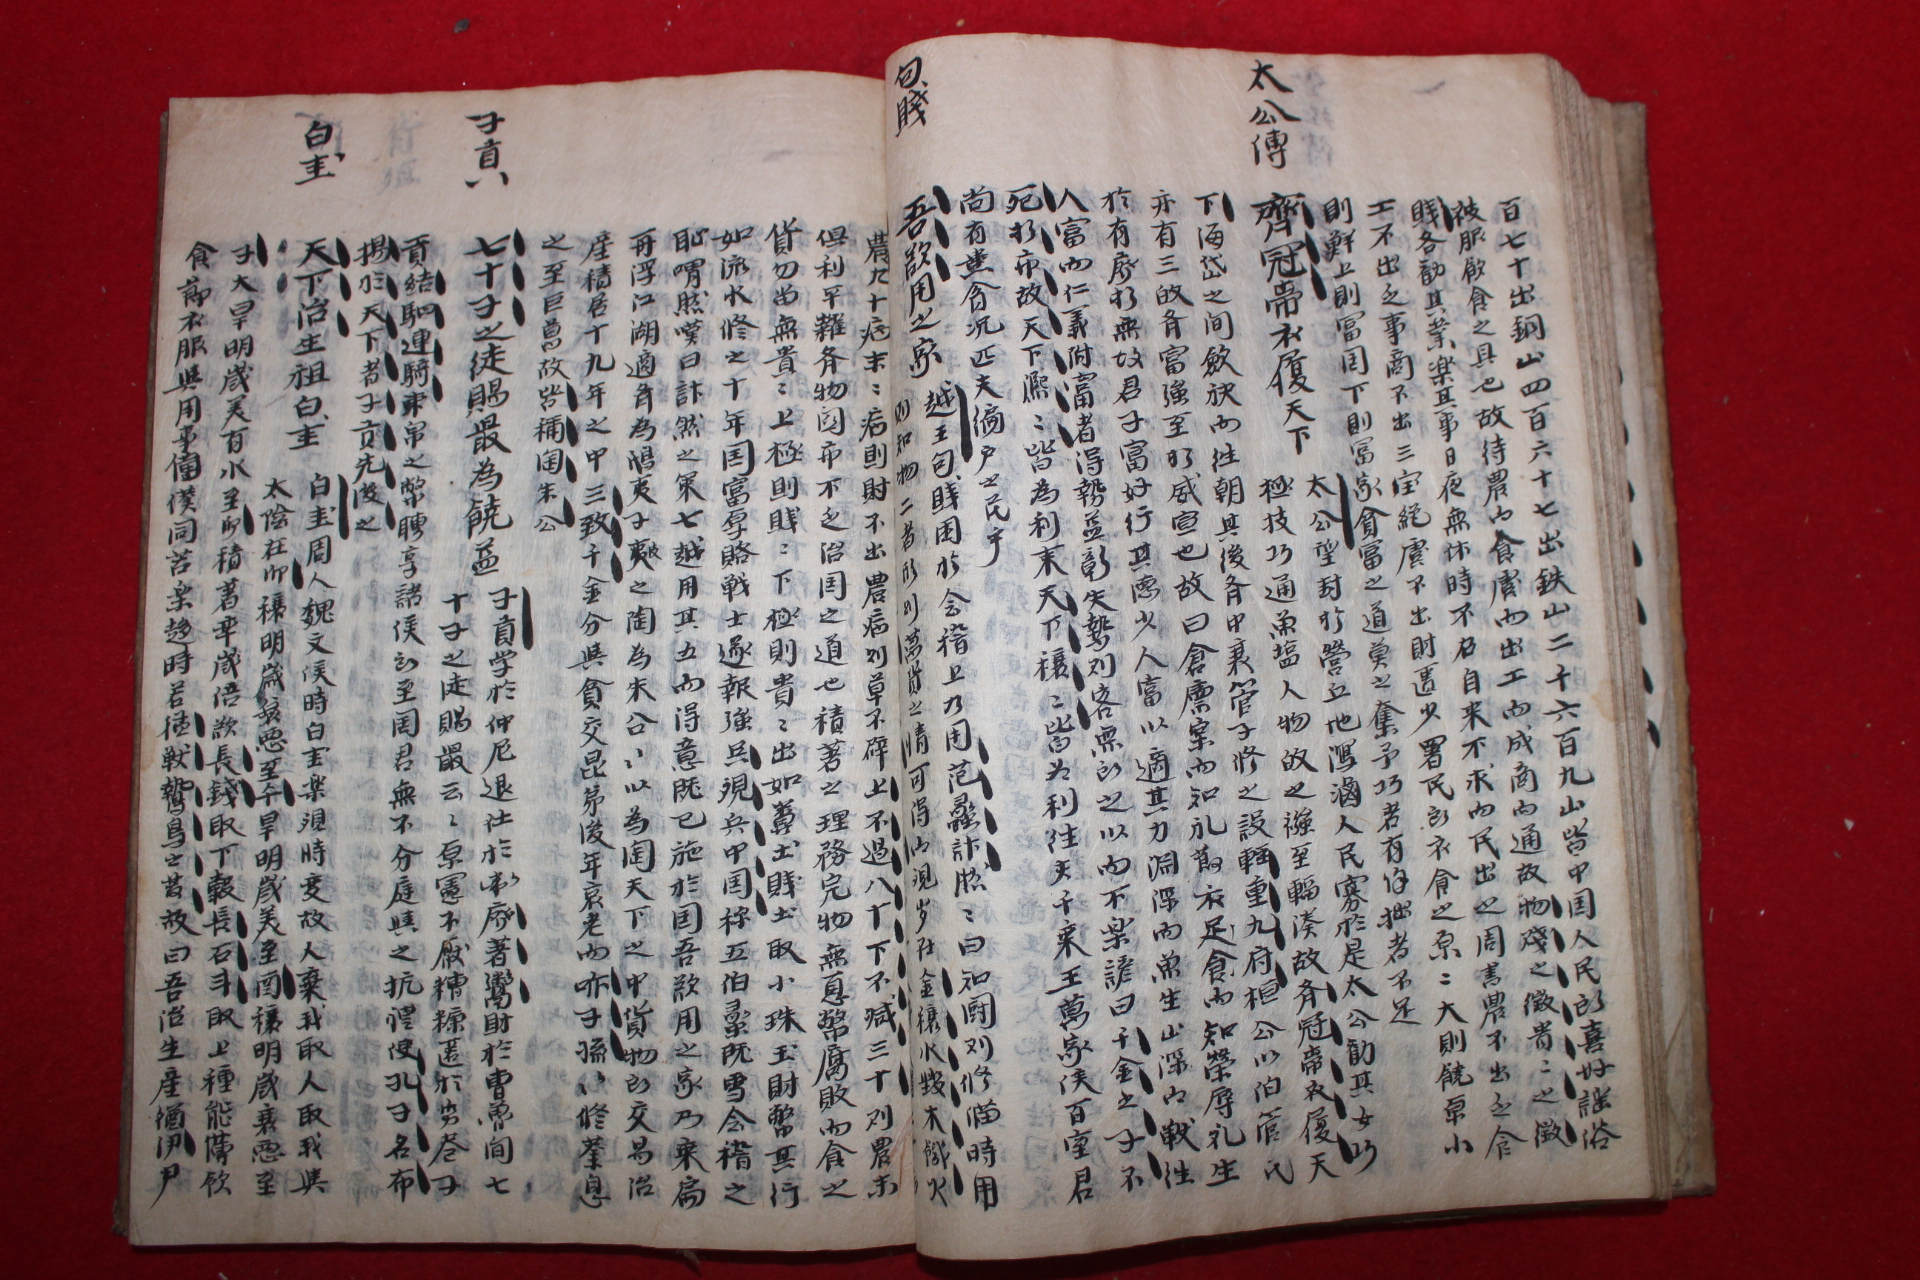 太公傳
百七十出銅山四百六十七出鉄山二千六百九山皆中国人民所喜好謡俗
被服飲食之具也故待農而食虞而出工而成商而通故物賤之徴貴〻之徴
賤各勧其業楽其事日夜無休時不召自来不求而民出之周書農不出乏食
工不出乏事商不出三宝絶虞不出財匱少署民所衣食之原〻大則饒原小
則鮮上則冨国下則冨家貧富之道莫之奪予巧者有余拙者不足
齊冠帶衣履天下
太公望封於營丘地潟滷人民寡於是太公勧其女功
極技巧通魚塩人物故之襁至輻湊故斉冠帶衣履天
下海岱之间歛袂而往朝其後斉中衰管子修之設輕重九府桓公以伯管氏
亦有三皈斉富強至於威宣也故曰倉廩実而知礼莭衣足食而知榮辱礼生
於有廃於無故君子富好行其徳少人富以適其力淵深而魚生山深而獣往
人富而仁義附富者得勢益彰失勢則客無所之以而不楽諺曰千金之子不
死於市故天下熈〻皆為利来天下穰〻皆为利往夫千乗王萬家侯百室君
尚有患貧况匹夫徧户之民乎
句賤
吾欲用之家
越王句賤困於会稽上乃用范蠡計然〻曰知闘則修備時用
則知物二者形則萬貨之情可得而現歲在金穰水毀木饑火
農九十病末〻病則財不出農病則草不辟上不過八十下不减三十則農末
俱利平糶斉物関市不乏治国之道也積著之理務完物無息幣腐敗而食之
貨勿留無貴〻上極則賤〻下極則貴〻出如糞土賤土取小珠玉財幣其行
如流水修之十年国富厚賂戦士遂報強呉現兵中国称五伯蠡既雪会稽之
恥喟然嘆曰計然之策七越用其五而得意既已施於国吾欲用之家乃乗扁
舟浮江湖適斉為鴟夷子皮之陶為朱公〻以為陶天下之中貨物所交易治
産積居十九年之中三致千金分與貧交昆弟後年衰老而听子孫〻修業息
之至巨萬故皆稱陶朱公
子貢
七十子之徒賜最為饒益
子貢学於仲尼退仕於衛廃著鬻財於曹魯间七
十子之徒賜最云〻原憲不厭糟糠匿於穷巷子
貢結駟連騎束帛之幣聘享諸侯所至国君無不分庭與之抗禮使孔子名布
揚於天下者子貢先後之
白圭
天下治生祖白圭
白圭周人魏文侯時白圭楽須時变故人棄我取人取我與
太陰在卯穰明歲衰悪至午旱明歲美至酉穰明歲衰悪至
子大旱明歲美有水至卯積著率歲倍欲長錢取下穀長石斗取上種能薄飲
食莭衣服與用事僮僕同苦楽趍時若猛獣鷙鳥之発故曰吾治生産猶伊尹